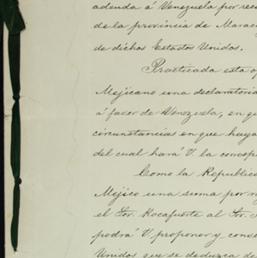 adeuda á Venezuela por rec
de la provincia de Marac
de dichos Estados Unidos.
Practicada esta o
Mejicano una declaratoria
á favor de Venezuela, en q
circunstancias en que haya
del cual hará V. la corresp
Como la Republic
Méjico una suma por
el Sor. Rocafuerte al Sor.
podrá V. proponer y conve
Unidos que se deduzca de